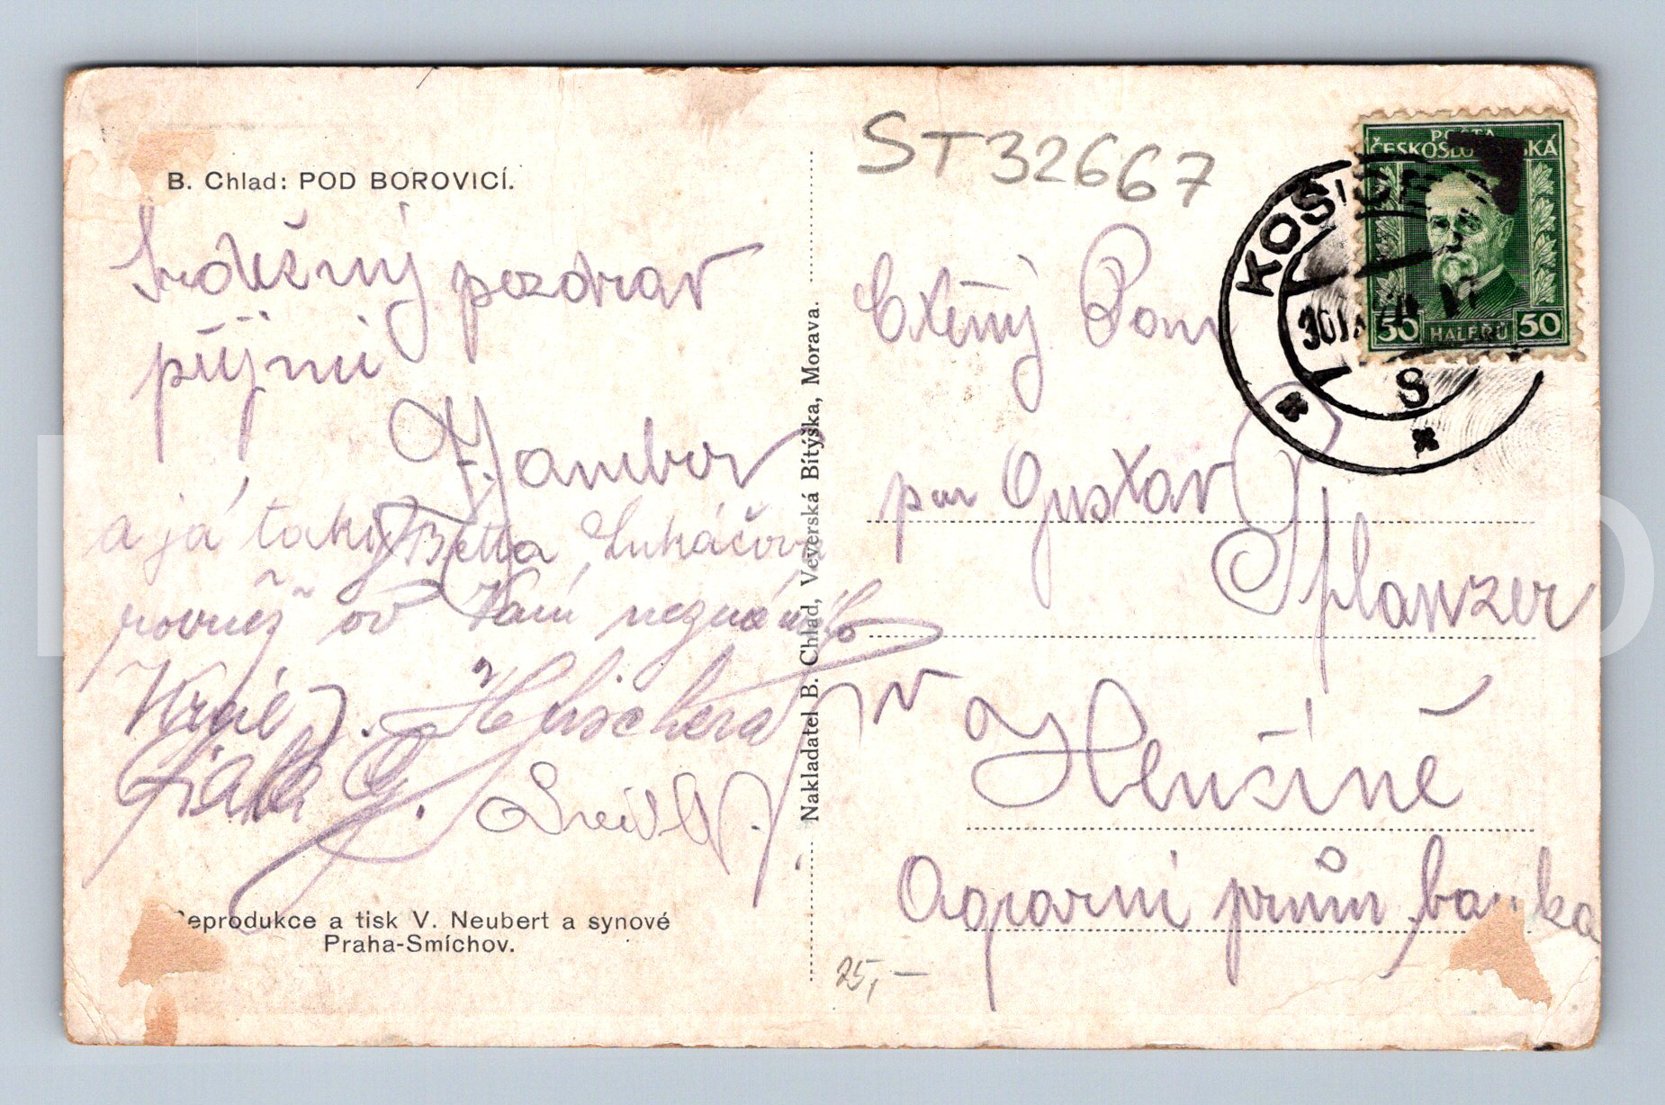 B. Chlad: POD BOROVICÍ.
Srdečný pozdrav
přijmi
Jambor
a já taky Betta Lukáčov
rovněž od Vám neznámého
J.
Fiala J.
Reprodukce a tisk V. Neubert a synové
Praha-Smíchov.
Nakladatel B. Chlad, Veverská Bítýška, Morava.
ST32667
POŠTA
ČESKOSLOVENSKÁ
50 HALÉŘŮ 50
KOŠICE
S
Ctěný Pan
pan Gustav
Pflanzer
v
Hlušíně
Agrarní prům banka
25,-